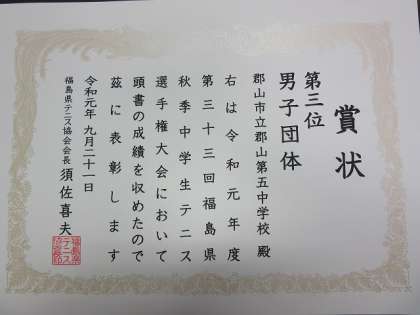 賞状
第三位
男子団体
郡山市立郡山第五中学校 殿
右は令和元年度
第三十三回福島県
秋季中学生テニス
選手権大会において
頭書の成績を収めたので
茲に表彰します
令和元年 九月二十一日
福島県テニス協会会長 須佐喜夫